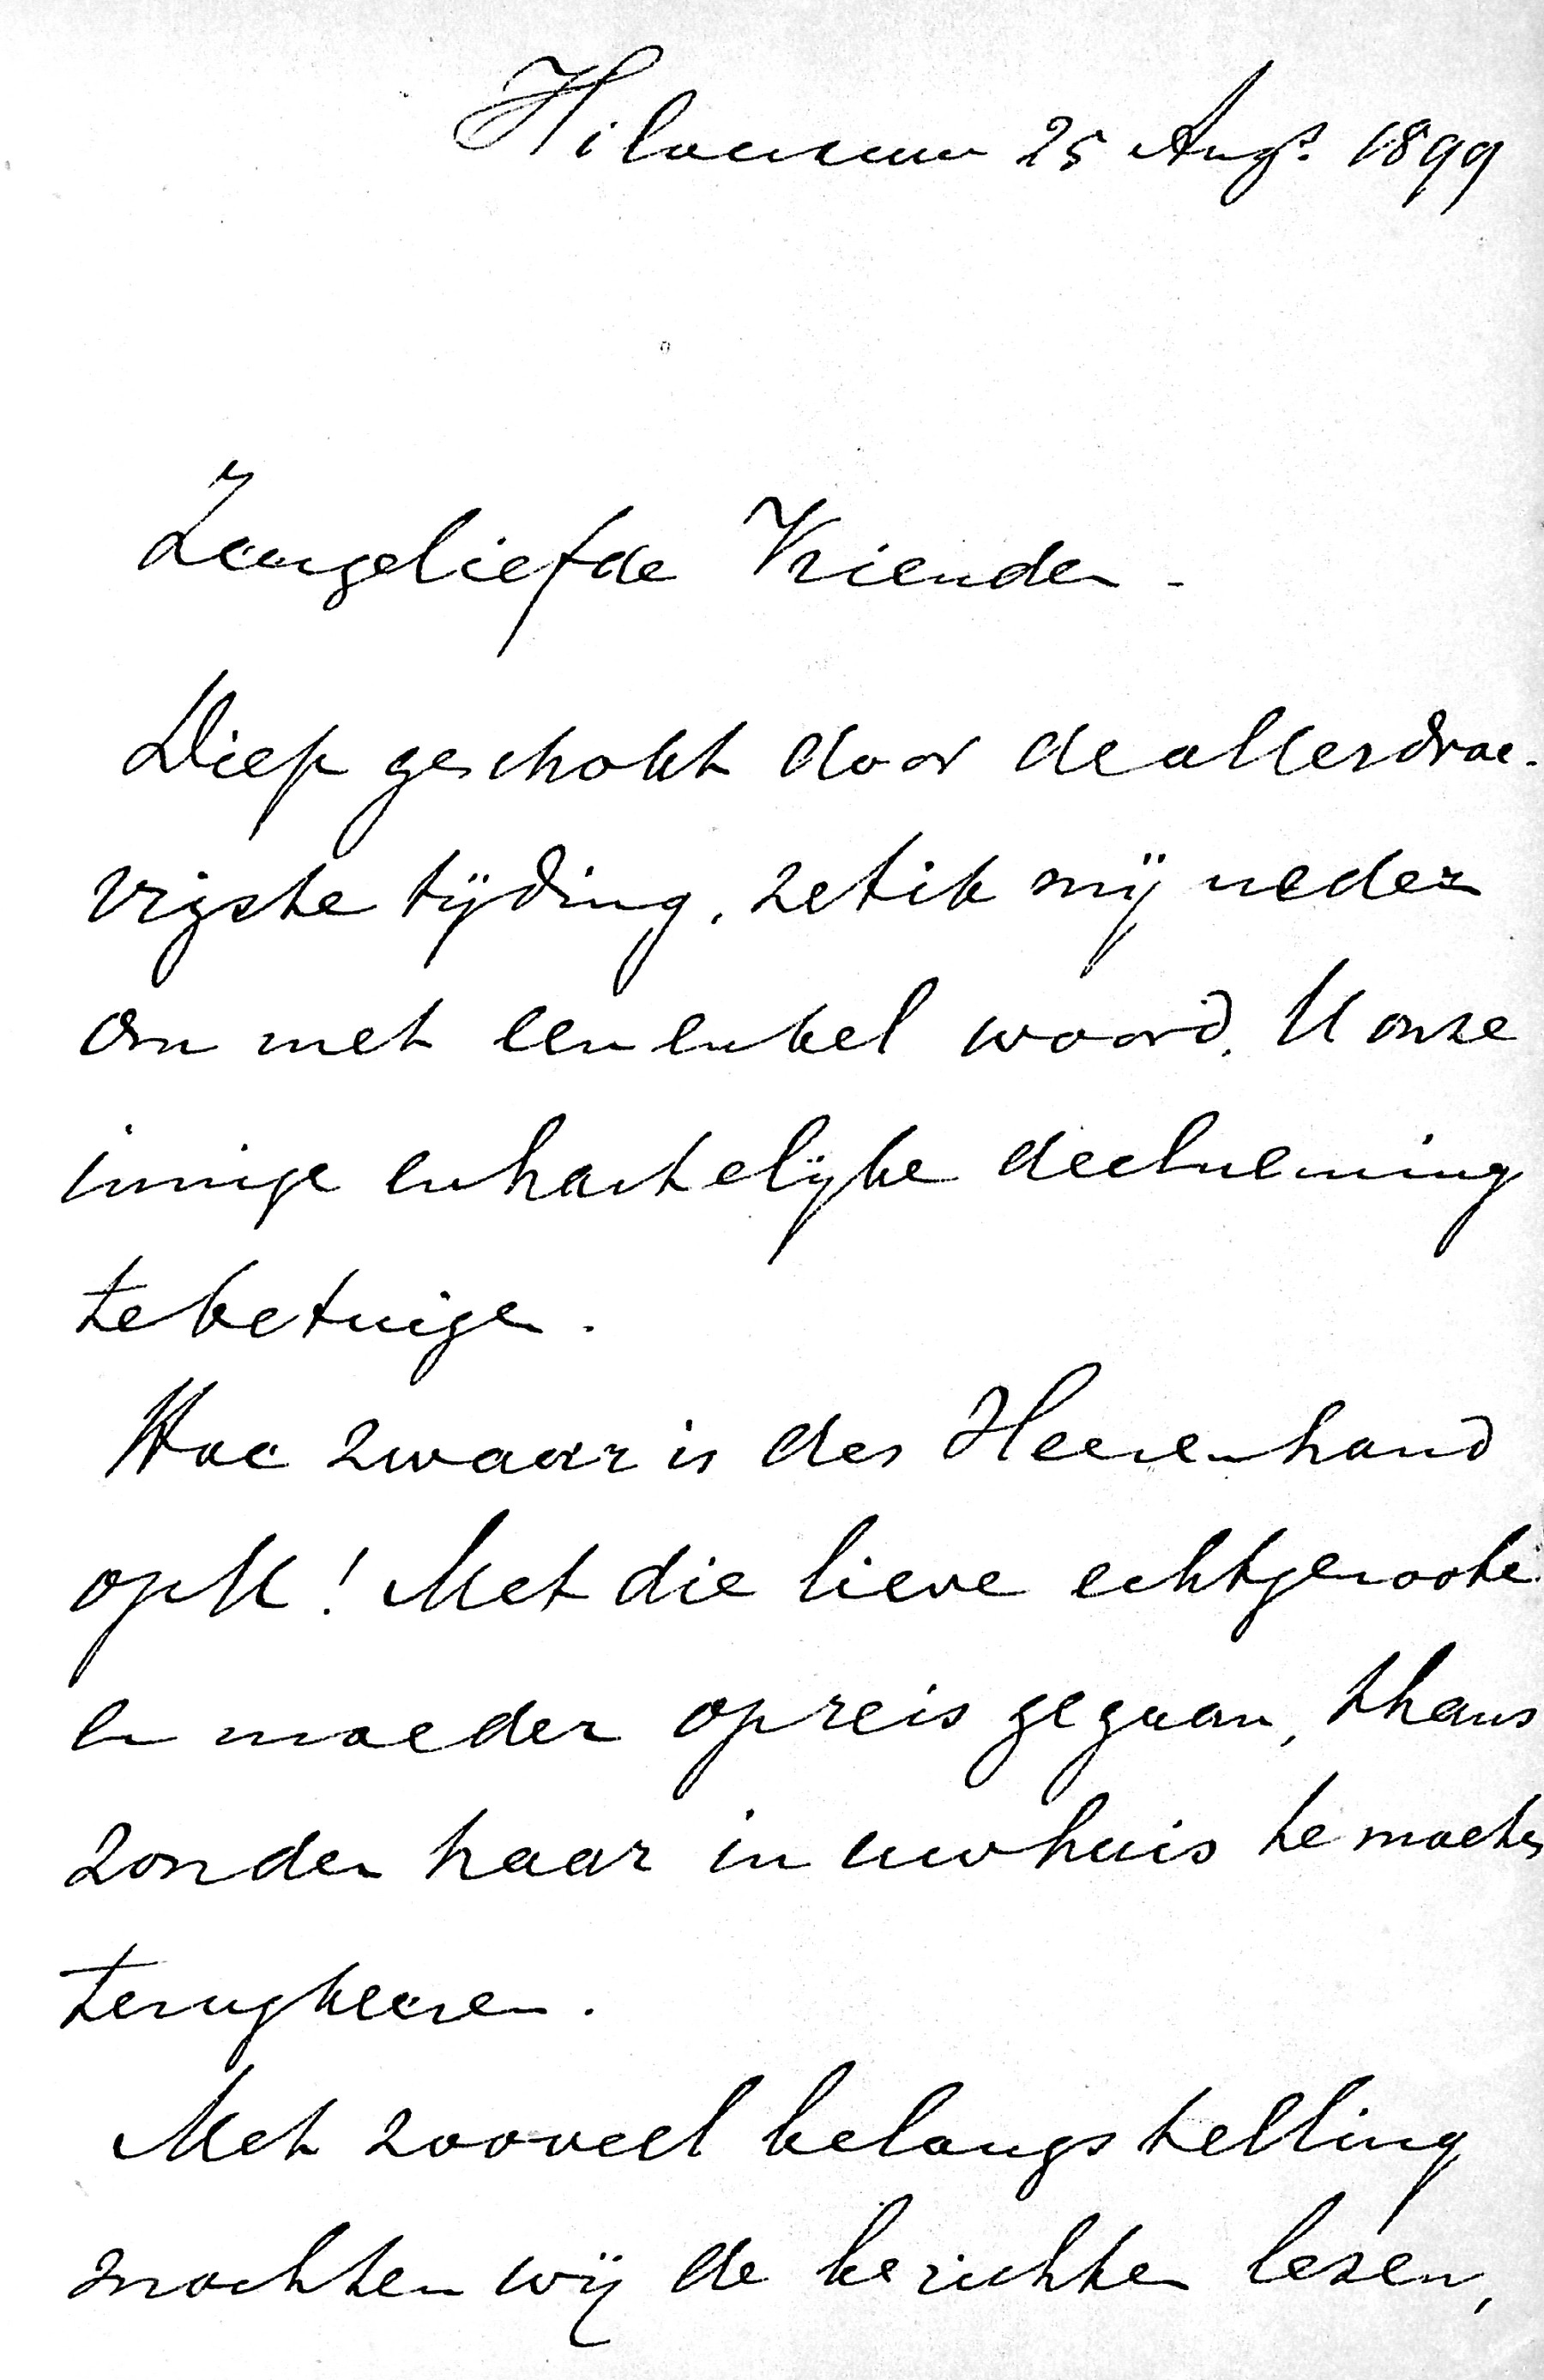 Hilversum 25 Augs. 1899
Zeergeliefde Vrienden.
Diep geschokt door de allerdroe-
vigste tijding, zet ik mij neder
om met een enkel woord, U onze
innige en hartelijke deelneming
te betuigen.
Hoe zwaar is des Heeren hand
op U! Met die lieve echtgenoote
en moeder op reis gegaan, thans
zonder haar in uw huis te moeten
terugkeeren.
Met zooveel belangstelling
mochten wij de berichten lezen,